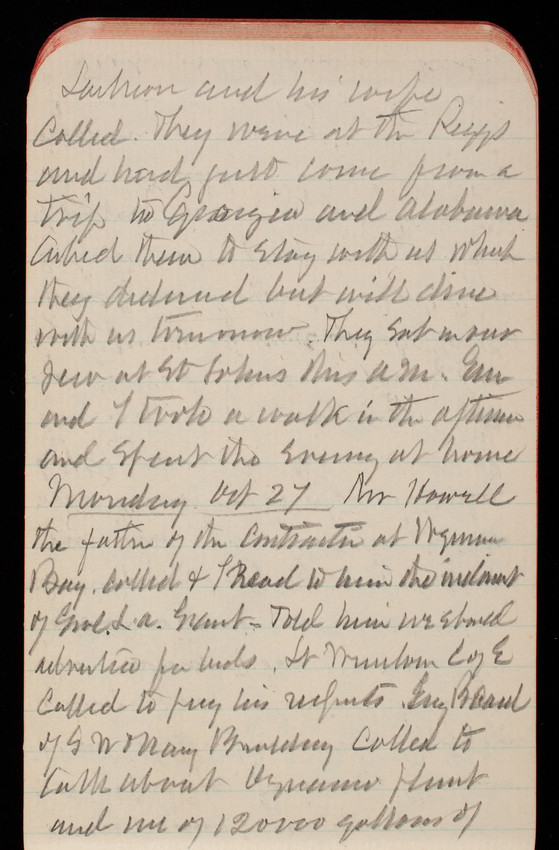 and his wife
called. They were at the Riggs
and had just come from a
trip to Georgia and Alabama
Asked them to stay with us which
they declined but will dine
with us tomorrow. They sat in our
pew at St Johns this a.m. Em
and I took a walk in the afternoon
and spent the evening at home
Monday Oct 27 Mr Howell
the father of the contractor at
Bay. called & I Read to him the
of Genl. L. A. Grant - Told him we should
advertise for bids. Lt Corp E
called to pay his respects. Board
of S W & Navy Building called to
talk about Dynamo plant
and use of 120000 gallons of